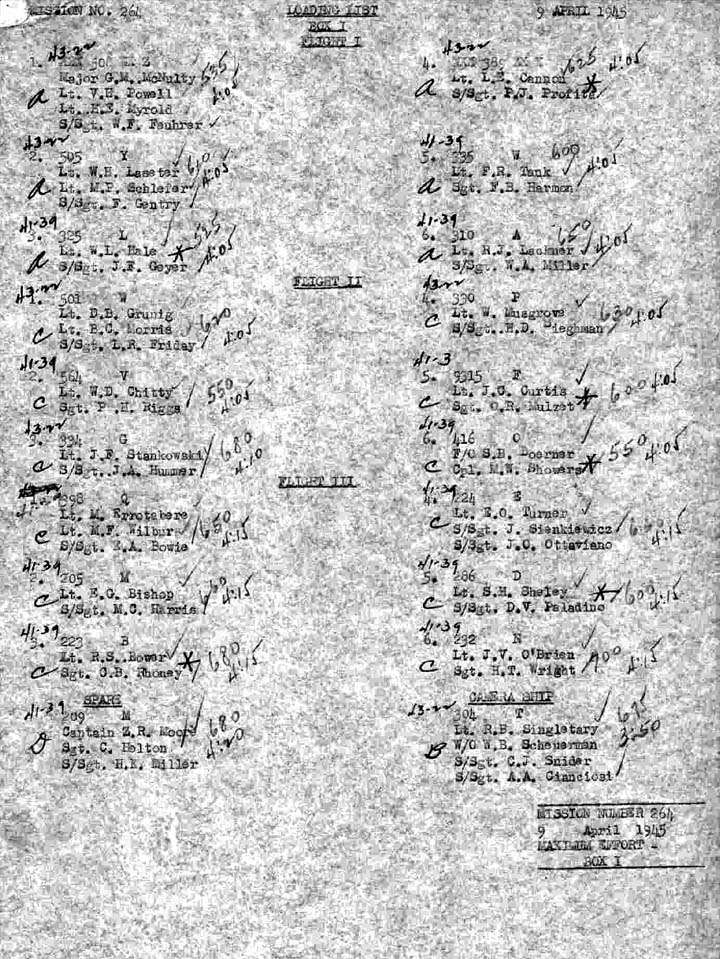 MISSION NO. 264
LOADING LIST
9 APRIL 1945
BOX I
FLIGHT I
43-22
1. 508 Z
535
Major G.M. McNulty
4:05
A Lt. V.H. Powell
Lt. H.E. Myrold
S/Sgt. W.F. Feuhrer
43-22
2. 505 Y
610
Lt. W.H. Lasater
4:05
A Lt. M.P. Schlefer
S/Sgt. F. Gentry
41-39
3. 325 L
525
Lt. W.L. Hale
4:05
A S/Sgt. J.F. Geyer
43-22
4. 389
625
4:05
Lt. L.E. Cannon
A S/Sgt. P.J. Profita
41-39
5. 335 W
600
Lt. F.R. Tank
4:05
A Sgt. F.B. Harmon
41-39
6. 310 A
650
Lt. R.J. Lackner
4:05
A S/Sgt. W.A. Miller
FLIGHT II
43-22
1. 501 W
Lt. D.B. Grunig
620
C Lt. B.C. Morris
4:05
S/Sgt. L.R. Friday
41-39
2. 564 V
550
Lt. W.D. Chitty
4:05
C Sgt. P.H. Riggs
43-22
3. 394 G
680
Lt. J.F. Stankowski
4:10
C S/Sgt. J.A. Hummer
43-22
4. 330 P
630
Lt. W. Musgrove
4:05
C S/Sgt. H.D. Dieghman
41-3
5. 9315 F
600
4:05
Lt. J.C. Curtis
C Sgt. O.R. Mulzet
41-39
6. 416 O
550
4:05
F/O S.B. Doerner
C Cpl. M.W. Showers
FLIGHT III
1. 398 Q
Lt. M. Errotabere
650
C Lt. M.F. Wilbur
4:15
S/Sgt. E.A. Bowie
41-39
2. 205 M
Lt. E.G. Bishop
4:15
C S/Sgt. M.C. Harris
41-39
3. 223 B
680
Lt. R.S. Bower
4:15
C Sgt. C.B. Rhoney
41-39
4. 224 E
C Lt. E.O. Turner
S/Sgt. J. Sienkiewicz
4:15
S/Sgt. J.C. Ottaviano
41-39
5. 286 D
600
Lt. S.H. Sheley
4:15
C S/Sgt. D.V. Paladino
41-39
6. 232 N
700
Lt. J.V. O'Brien
4:15
C Sgt. H.T. Wright
SPARE
41-39
209 M
680
Captain Z.R. Moore
4:20
D Sgt. C. Helton
S/Sgt. H.K. Miller
CAMERA SHIP
43-22
304 T
675
Lt. R.B. Singletary
3:50
B W/O W.B. Scheuerman
S/Sgt. C.J. Snider
S/Sgt. A.A. Cianciosi
MISSION NUMBER 264
9 April 1945
MAXIMUM EFFORT -
BOX I